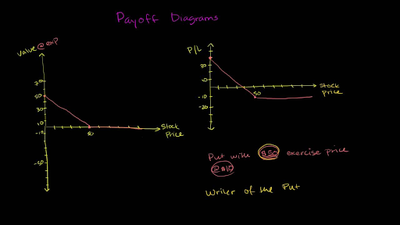 Payoff Diagrams
Value @ exp
P/L
50
10
-10
-50
50
Stock
Price
-10
-20
50
Stock
Price
Put with $50 exercise price
@ $10
Writer of the Put